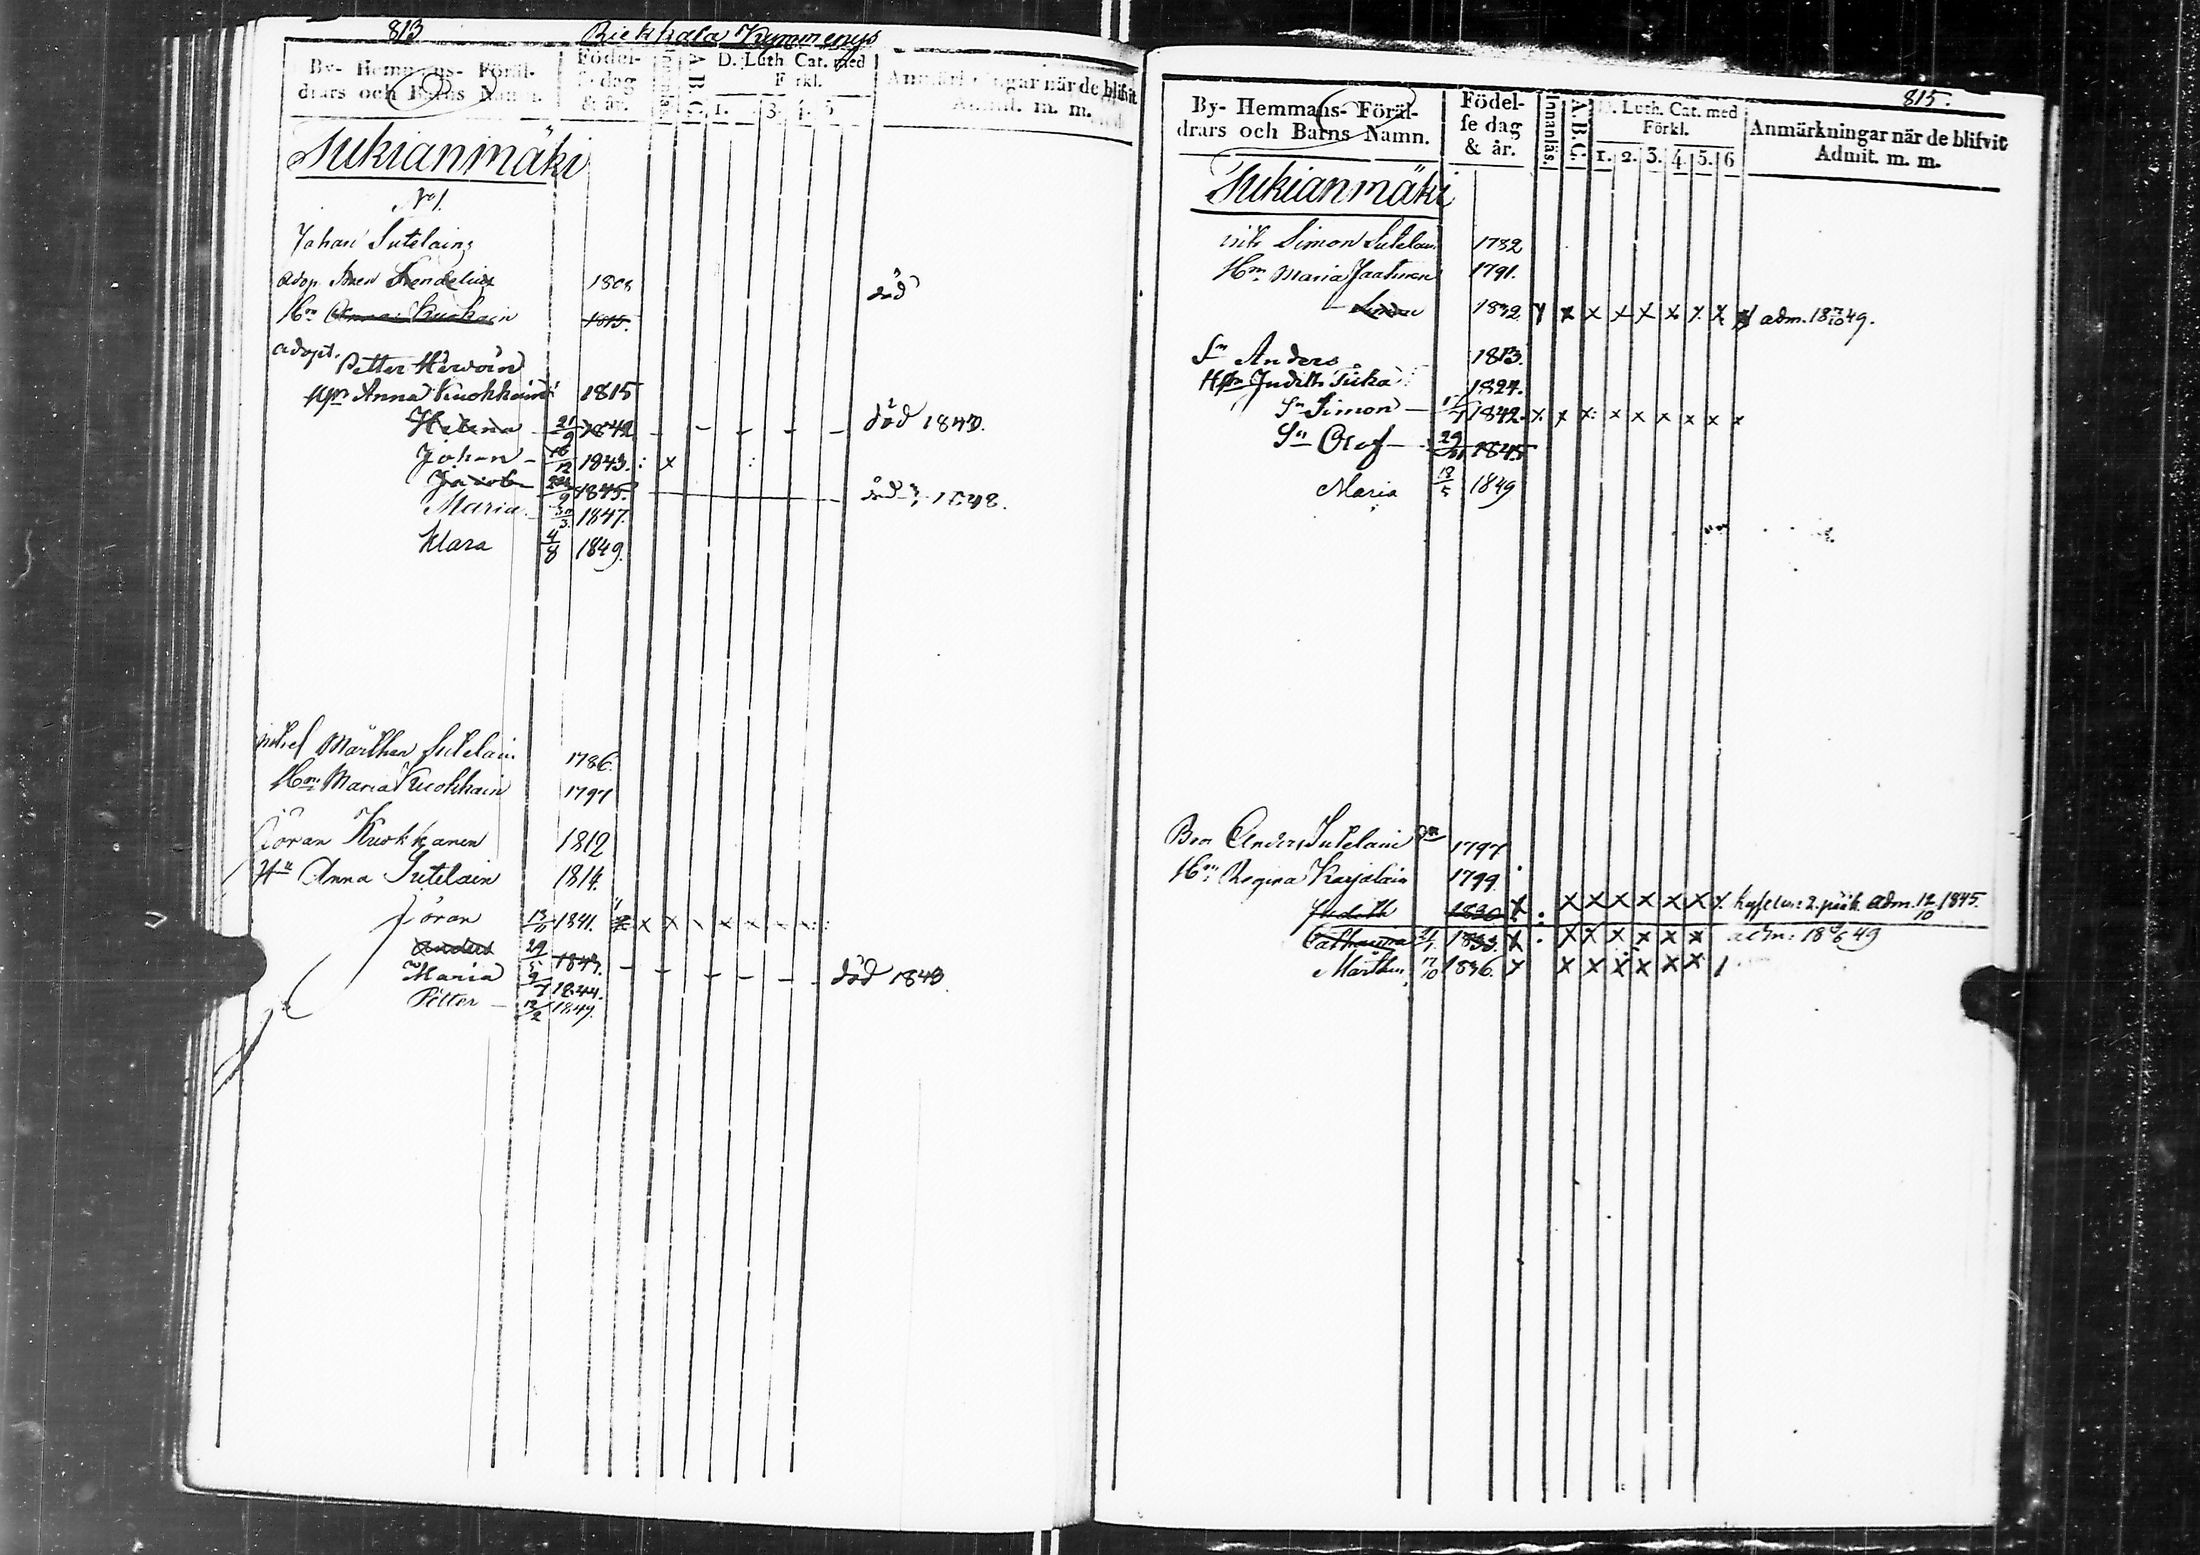 813 Riekkala Kymmenys
By- Hemmans- Föräl-
drars och Barns Namn.
Födel-
se dag
& år.
Innanläs.
A. B. C.
D. Luth. Cat. med
Förkl.
1. 3. 4. 5
Anmärkningar när de blifvit
Admit. m. m.
Sukianmäki
No 1.
Johan Sutelain
adop. 1808 död
Hn Anna Kuokkain 1815.
adopt. Petter Härvöin
Hn Anna Kuokkain 1815
Helena 21/9 1842 död 1843.
Johan 16/12 1843. x
Jacob 24/9 1845. död 1848.
Maria 30/3 1847.
Klara 4/8 1849.
Mårthen Sutelain 1786.
Hn Maria Kuokkain 1797
Göran Kuokkanen 1812
Hn Anna Sutelain 1814.
Göran 13/11 1841. x x x x x x x
Anders 29/5 1843. död 1843.
Maria 9/7 1844.
Petter 13/2 1849.
815.
By- Hemmans- Föräl-
drars och Barns Namn.
Födel-
se dag
& år.
Innanläs.
A. B. C.
D. Luth. Cat. med
Förkl.
1. 2. 3. 4. 5. 6
Anmärkningar när de blifvit
Admit. m. m.
Sukianmäki
Simon Sutelain 1782
Hn Maria Jaatinen 1791.
Simon 1832. x x x x x x x x adm. 18 7/10 49.
Sn Anders 1813.
Hn Judith Suka 1824.
Sn Simon 1842. x x x x x x x x x
Sn Olof 29 1845
Maria 13/5 1849
Bror Anders Sutelain 1797
Hn Regina Karjalain 1799.
Judith 1830 x x x x x x x x adm. 12/10 1845.
Catharina 1833. x x x x x x x adm: 18 49
Mårthen 17/10 1836. x x x x x x x